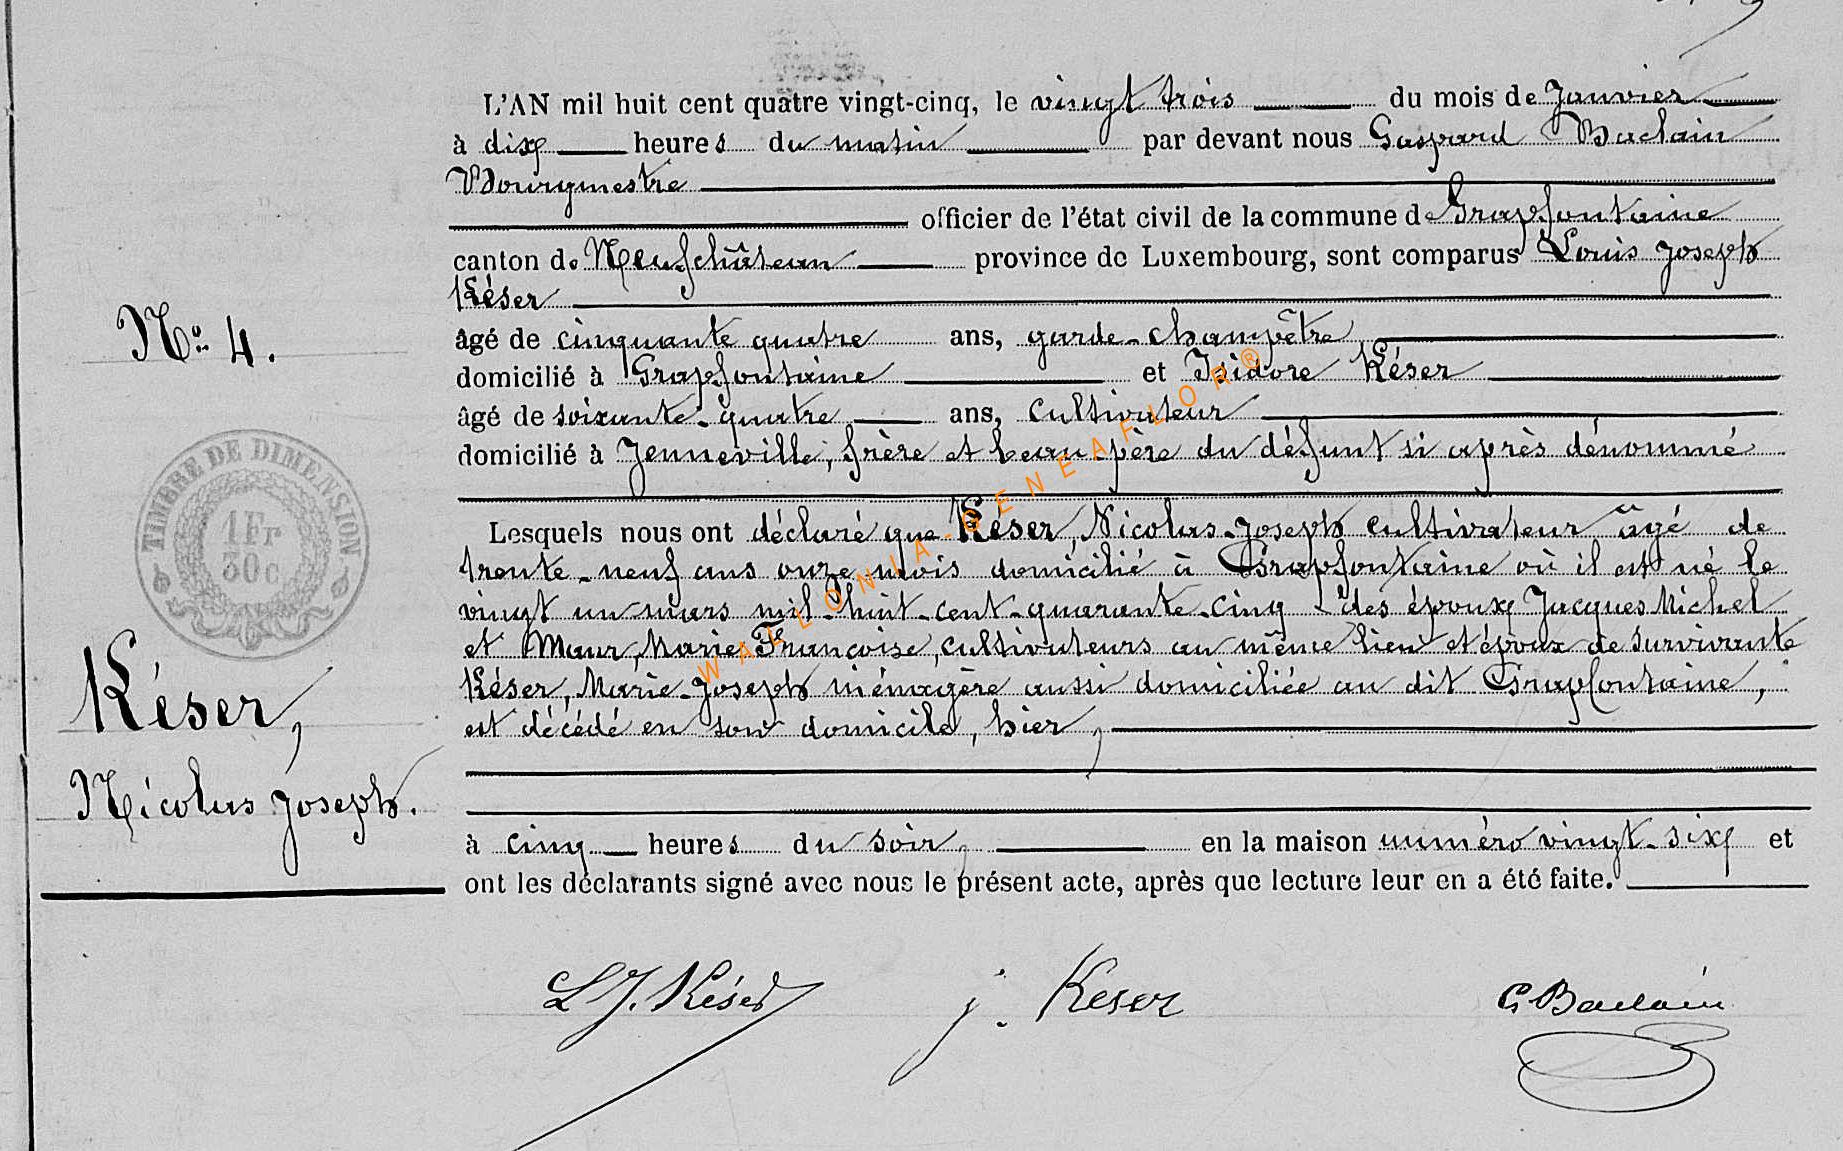 L'AN mil huit cent quatre vingt-cinq, le vingt trois du mois de Janvier
à dix heures du matin par devant nous Gaspard Baclain
Bourgmestre
officier de l'état civil de la commune de Grapfontaine
canton de Neufchâteau province de Luxembourg, sont comparus Louis Joseph
Késer
No 4.
âgé de cinquante quatre ans, garde-champêtre
domicilié à Grapfontaine et Isidore Késer
âgé de soixante-quatre ans, cultivateur
domicilié à Jenneville, frère et beau-père du défunt si après dénommé
TIMBRE DE DIMENSION
1 Fr
30 c
Lesquels nous ont déclaré que Késer, Nicolas-Joseph cultivateur âgé de
trente-neuf ans onze mois domicilié à Grapfontaine où il est né le
vingt un mars mil-huit-cent-quarante-cinq des époux Jacques Michel
et Maur, Marie Françoise, cultivateurs au même lieu et époux de survivante
Késer, Marie-Joseph ménagère aussi domiciliée au dit Grapfontaine,
est décédé en son domicile, hier,
Késer,
Nicolas Joseph.
à cinq heures du soir, en la maison numéro vingt-six et
ont les déclarants signé avec nous le présent acte, après que lecture leur en a été faite.
L J. Késer j. Keser G Baclain
WALLONIA-GENEAFLOR®